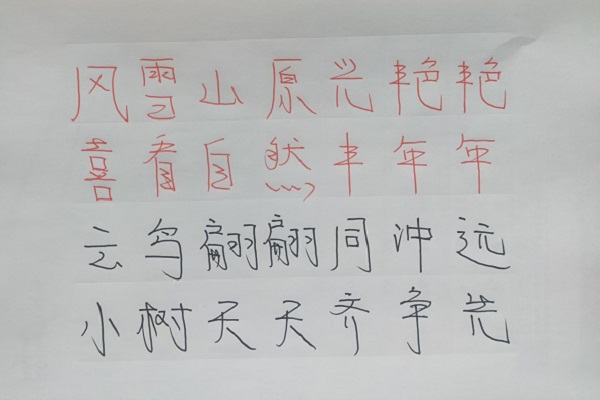 风雪山原光艳艳
喜看自然丰年年
云鸟翩翩同冲远
小树天天齐争先